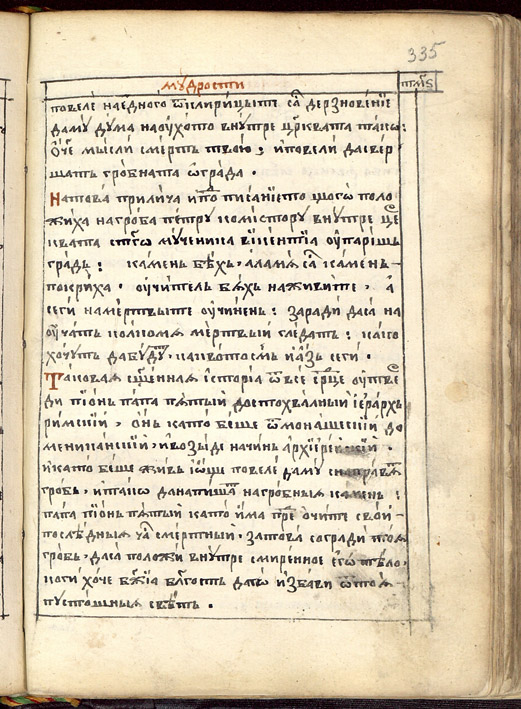 335
мꙋдрости
повеле наедного ѿклирицыте са дерзновенїе
дамꙋ дꙋма наоухото внꙋтре црквата тако:
ѻче мысли смерть твою; иповели дасвер
шатъ гробната ѡграда.
Натова прилича ито писанието щого поло
жиха нагроба петрꙋ комисторꙋ внꙋтре це
квата стгѡ мученика викентїа оупаришъ
градъ: камень бѣхъ, аламѧ са камень
покриха. оучитель бѧхъ наживите, а
сеги намертвыте оучиненъ: заради даса на
оучатъ колкома мертвый гледатъ: како
хочутъ дабꙋдꙋтъ, каквотосмь иазъ сеги.
Таковаѧ сщенная історїа ѿвсе срце оутве
ди пїѡнъ папа пѧтый достохвалный іерархъ
римскїй, онъ като беше ѿмонашескїй до
мениканскїй, ивозыде начинъ архїерейскїй.
икато беше живъ іоще повеле дамꙋ снаправѧ
гробъ, итако данапишатъ нагробныѧ камень:
папа пїѡнъ пѧтый като има пре очите свои
послѣдныѧ ча смертный. затова согради тоѧ
гробъ, даса положи внꙋтре смиренное его тѣло,
коги хоче бжїа блгость даго избави ѿтоѧ
пустошныѧ свѣтъ.